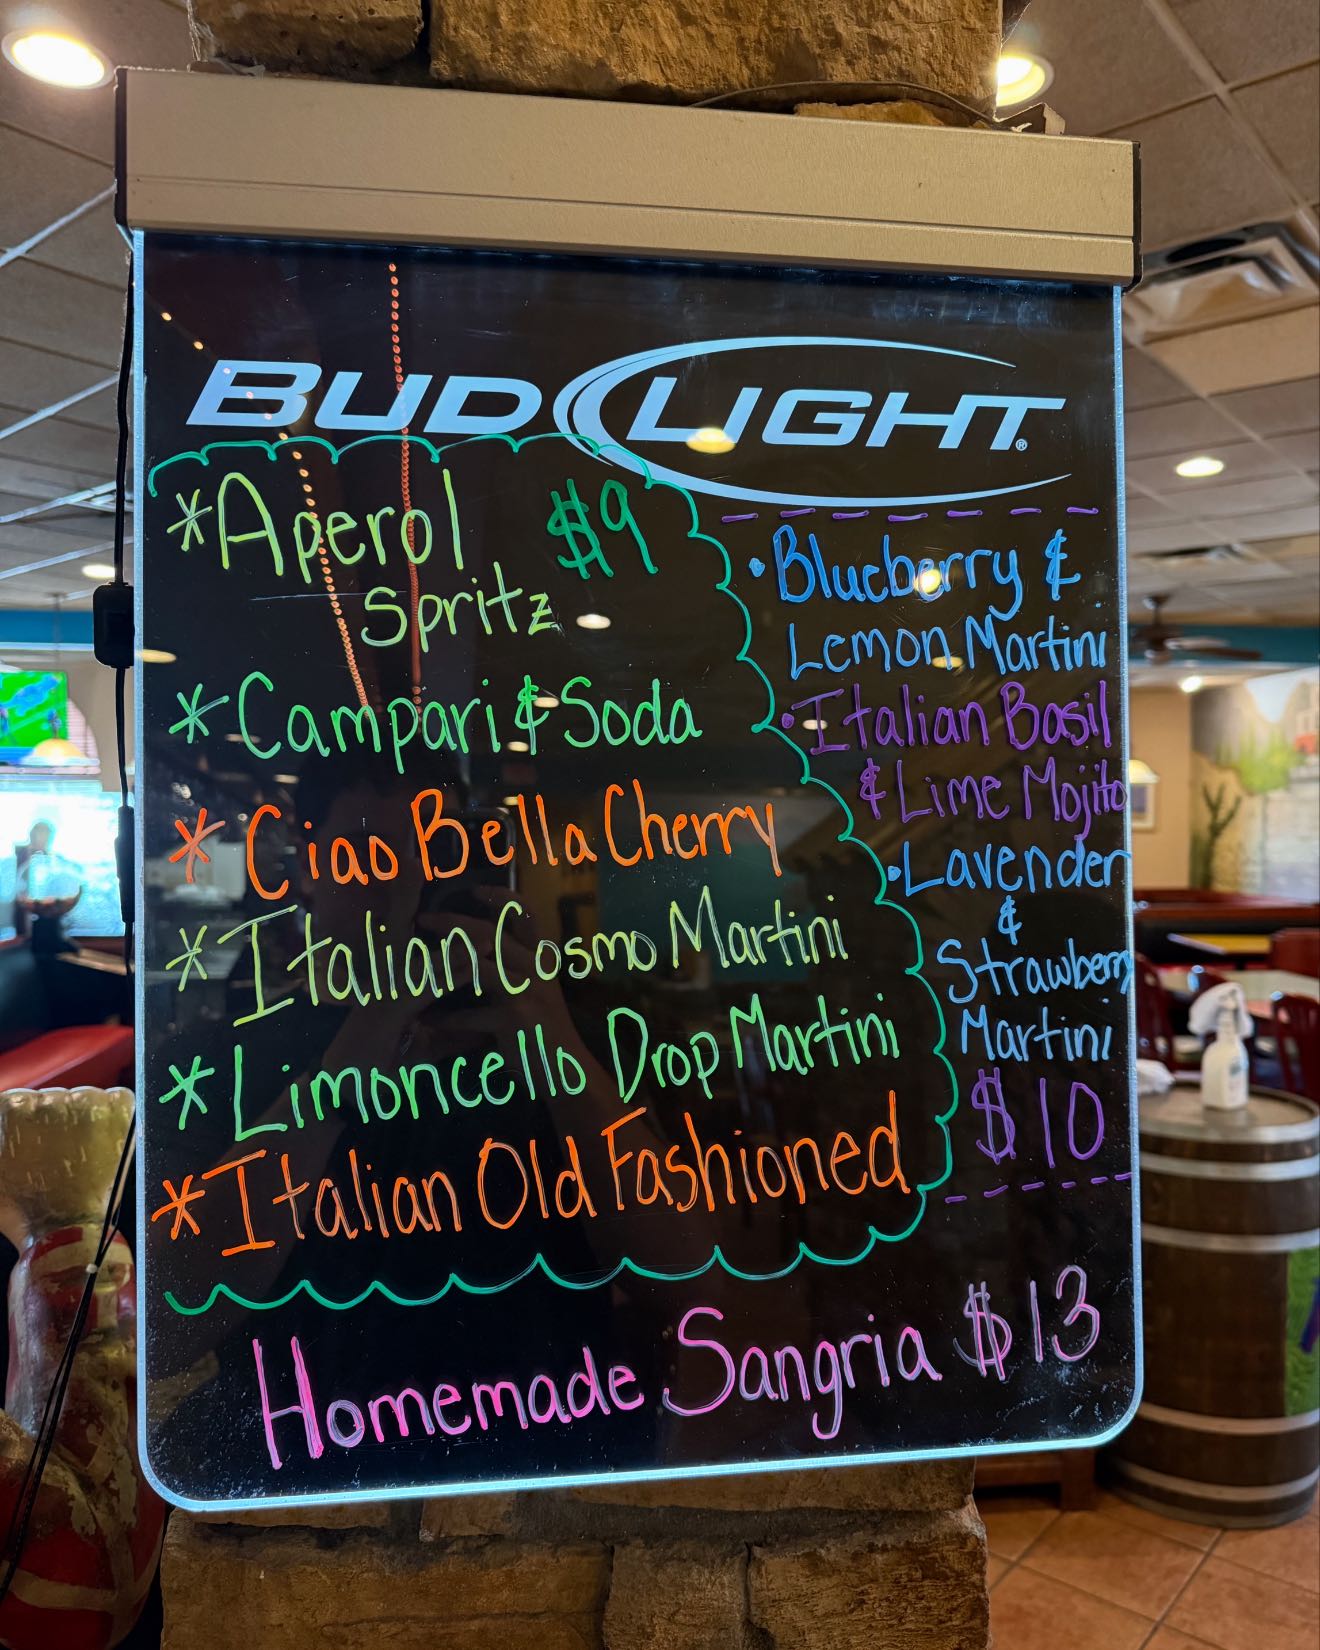 BUD LIGHT®
*Aperol $9
Spritz
*Campari & Soda
*Ciao Bella Cherry
*Italian Cosmo Martini
*Limoncello Drop Martini
*Italian Old Fashioned
•Blueberry &
Lemon Martini
•Italian Basil
& Lime Mojito
•Lavender
&
Strawberry
Martini
$10
Homemade Sangria $13